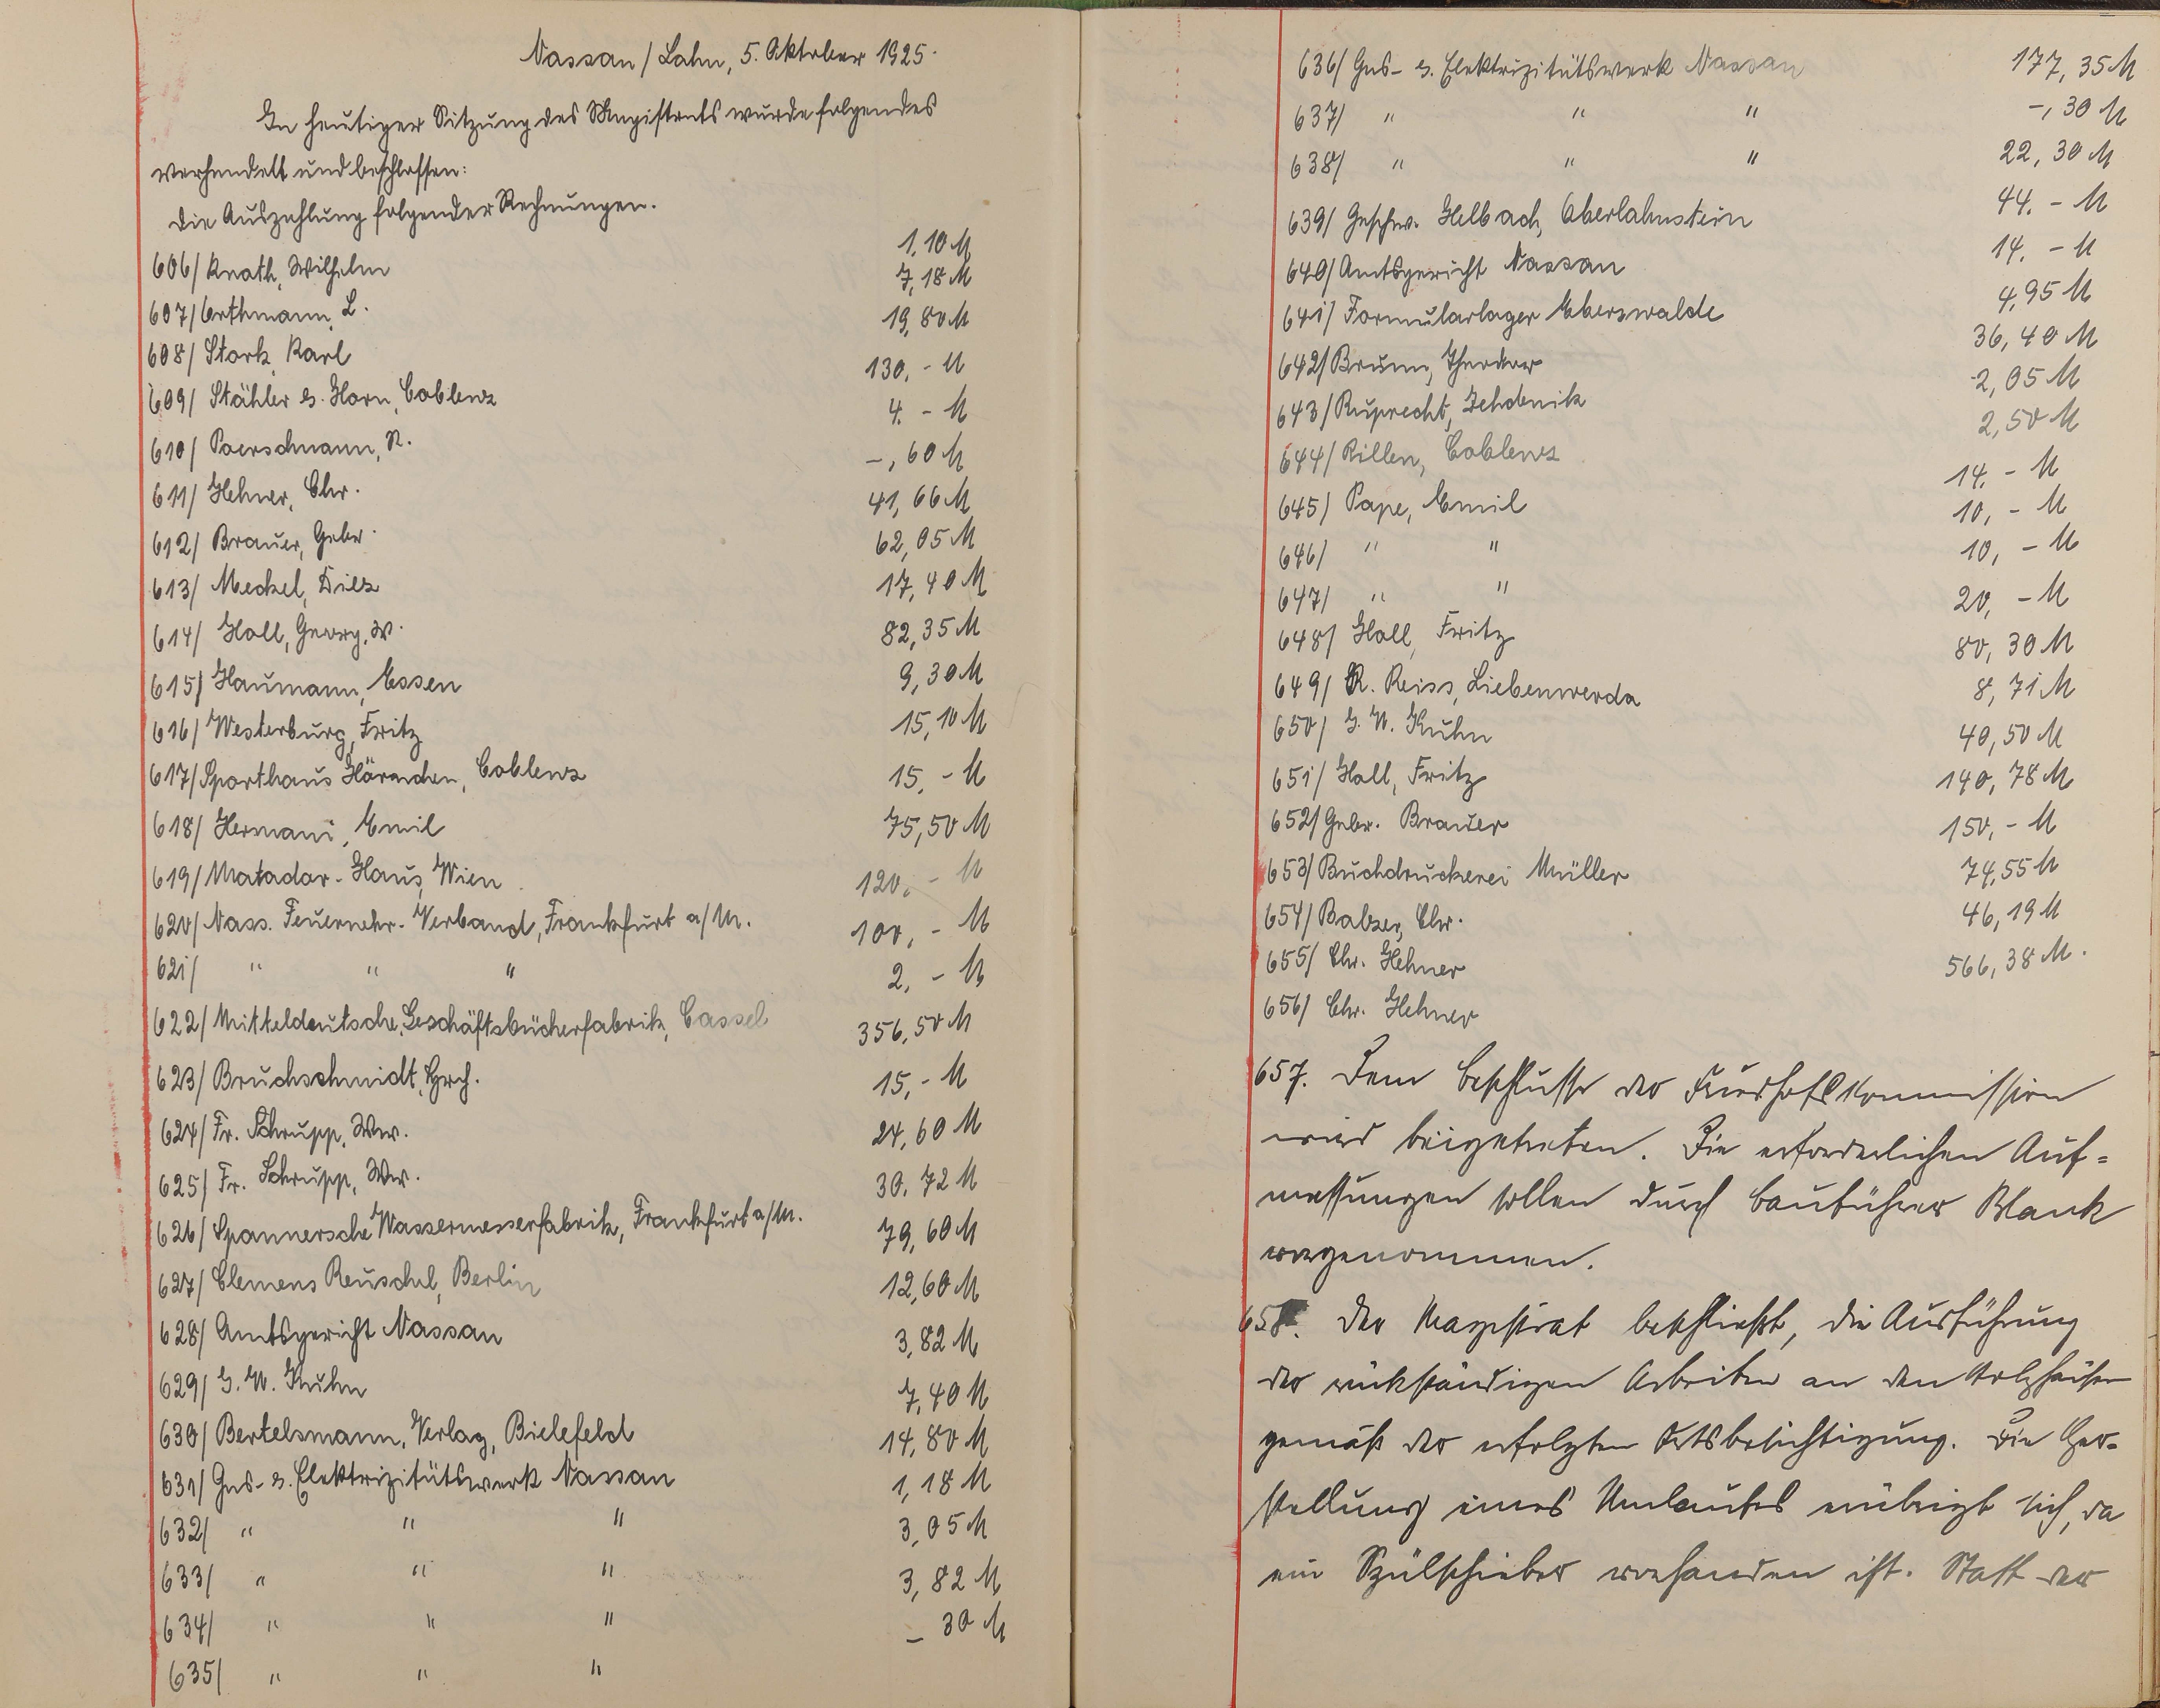 Nassau / Lahn, 5. Oktober 1925.
In heutiger Sitzung des Magistrats wurde folgendes
verhandelt und beschlossen:
die Auszahlung folgender Rechnungen.
606/ Knoth, Wilhelm 1,10 M
607/ Orthmann, L. 7,18 M
608/ Stork, Karl 19,80 M
609/ Stähler & Horn, Coblenz 130,- M
610/ Poerschmann, R. 4,- M
611/ Hehner, Chr. -,60 M
612/ Brauer, Gebr. 41,66 M
613/ Meckel, Diez 62,05 M
614/ Holl, Georg, W. 17,40 M
615/ Haumann, Essen 82,35 M
616/ Westerburg, Fritz 9,30 M
617/ Sporthaus Hörnchen, Coblenz 15,10 M
618/ Hermani, Emil 15,- M
619/ Matador-Haus, Wien 75,50 M
620/ Nass. Feuerwehr-Verband, Frankfurt a/M. 120,- M
621/ " " " 100,- M
622/ Mitteldeutsche Geschäftsbücherfabrik, Cassel 2,- M
623/ Bruchschmidt, Hrch. 356,50 M
624/ Fr. Schrupp, Ww. 15,- M
625/ Fr. Schrupp, Ww. 24,60 M
626/ Spannersche Wassermesserfabrik, Frankfurt a/M. 30,72 M
627/ Clemens Reuschel, Berlin 79,60 M
628/ Amtsgericht Nassau 12,60 M
629/ J. W. Kuhn 3,82 M
630/ Bertelsmann, Verlag, Bielefeld 7,40 M
631/ Gas- & Elektrizitätswerk Nassau 14,80 M
632/ " " " 1,18 M
633/ " " " 3,05 M
634/ " " " 3,82 M
635/ " " " - 30 M
636/ Gas- & Elektrizitätswerk Nassau 177,35 M
637/ " " " -,30 M
638/ " " " 22,30 M
639/ Geschw. Helbach, Oberlahnstein 44,- M
640/ Amtsgericht Nassau 14,- M
641/ Formularlager Eberswalde 4,95 M
642/ Brunn, Theodor 36,40 M
643/ Ruprecht, Zehdenik 2,05 M
644/ Rillen, Coblenz 2,50 M
645/ Pape, Emil 14,- M
646/ " " 10,- M
647/ " " 10,- M
648/ Holl, Fritz 20,- M
649/ R. Reiss, Liebenwerda 80,30 M
650/ J. W. Kuhn 8,71 M
651/ Holl, Fritz 40,50 M
652/ Gebr. Brauer 140,78 M
653/ Buchdruckerei Müller 150,- M
654/ Balzer, Chr. 74,55 M
655/ Chr. Hehner 46,19 M
656/ Chr. Hehner 566,38 M.
657. Dem Beschlusse der Friedhofskommission
wird beigetreten. Die erforderlichen Auf=
messungen sollen durch Bauführer Blank
vorgenommen.
658. Der Magistrat beschließt, die Ausführung
der rückständigen Arbeiten an den Holzhäusern
gemäß der erfolgten Ortsbesichtigung. Die Her-
stellung eines Umlaufes erübrigt sich, da
ein Spülschieber vorhanden ist. Statt der